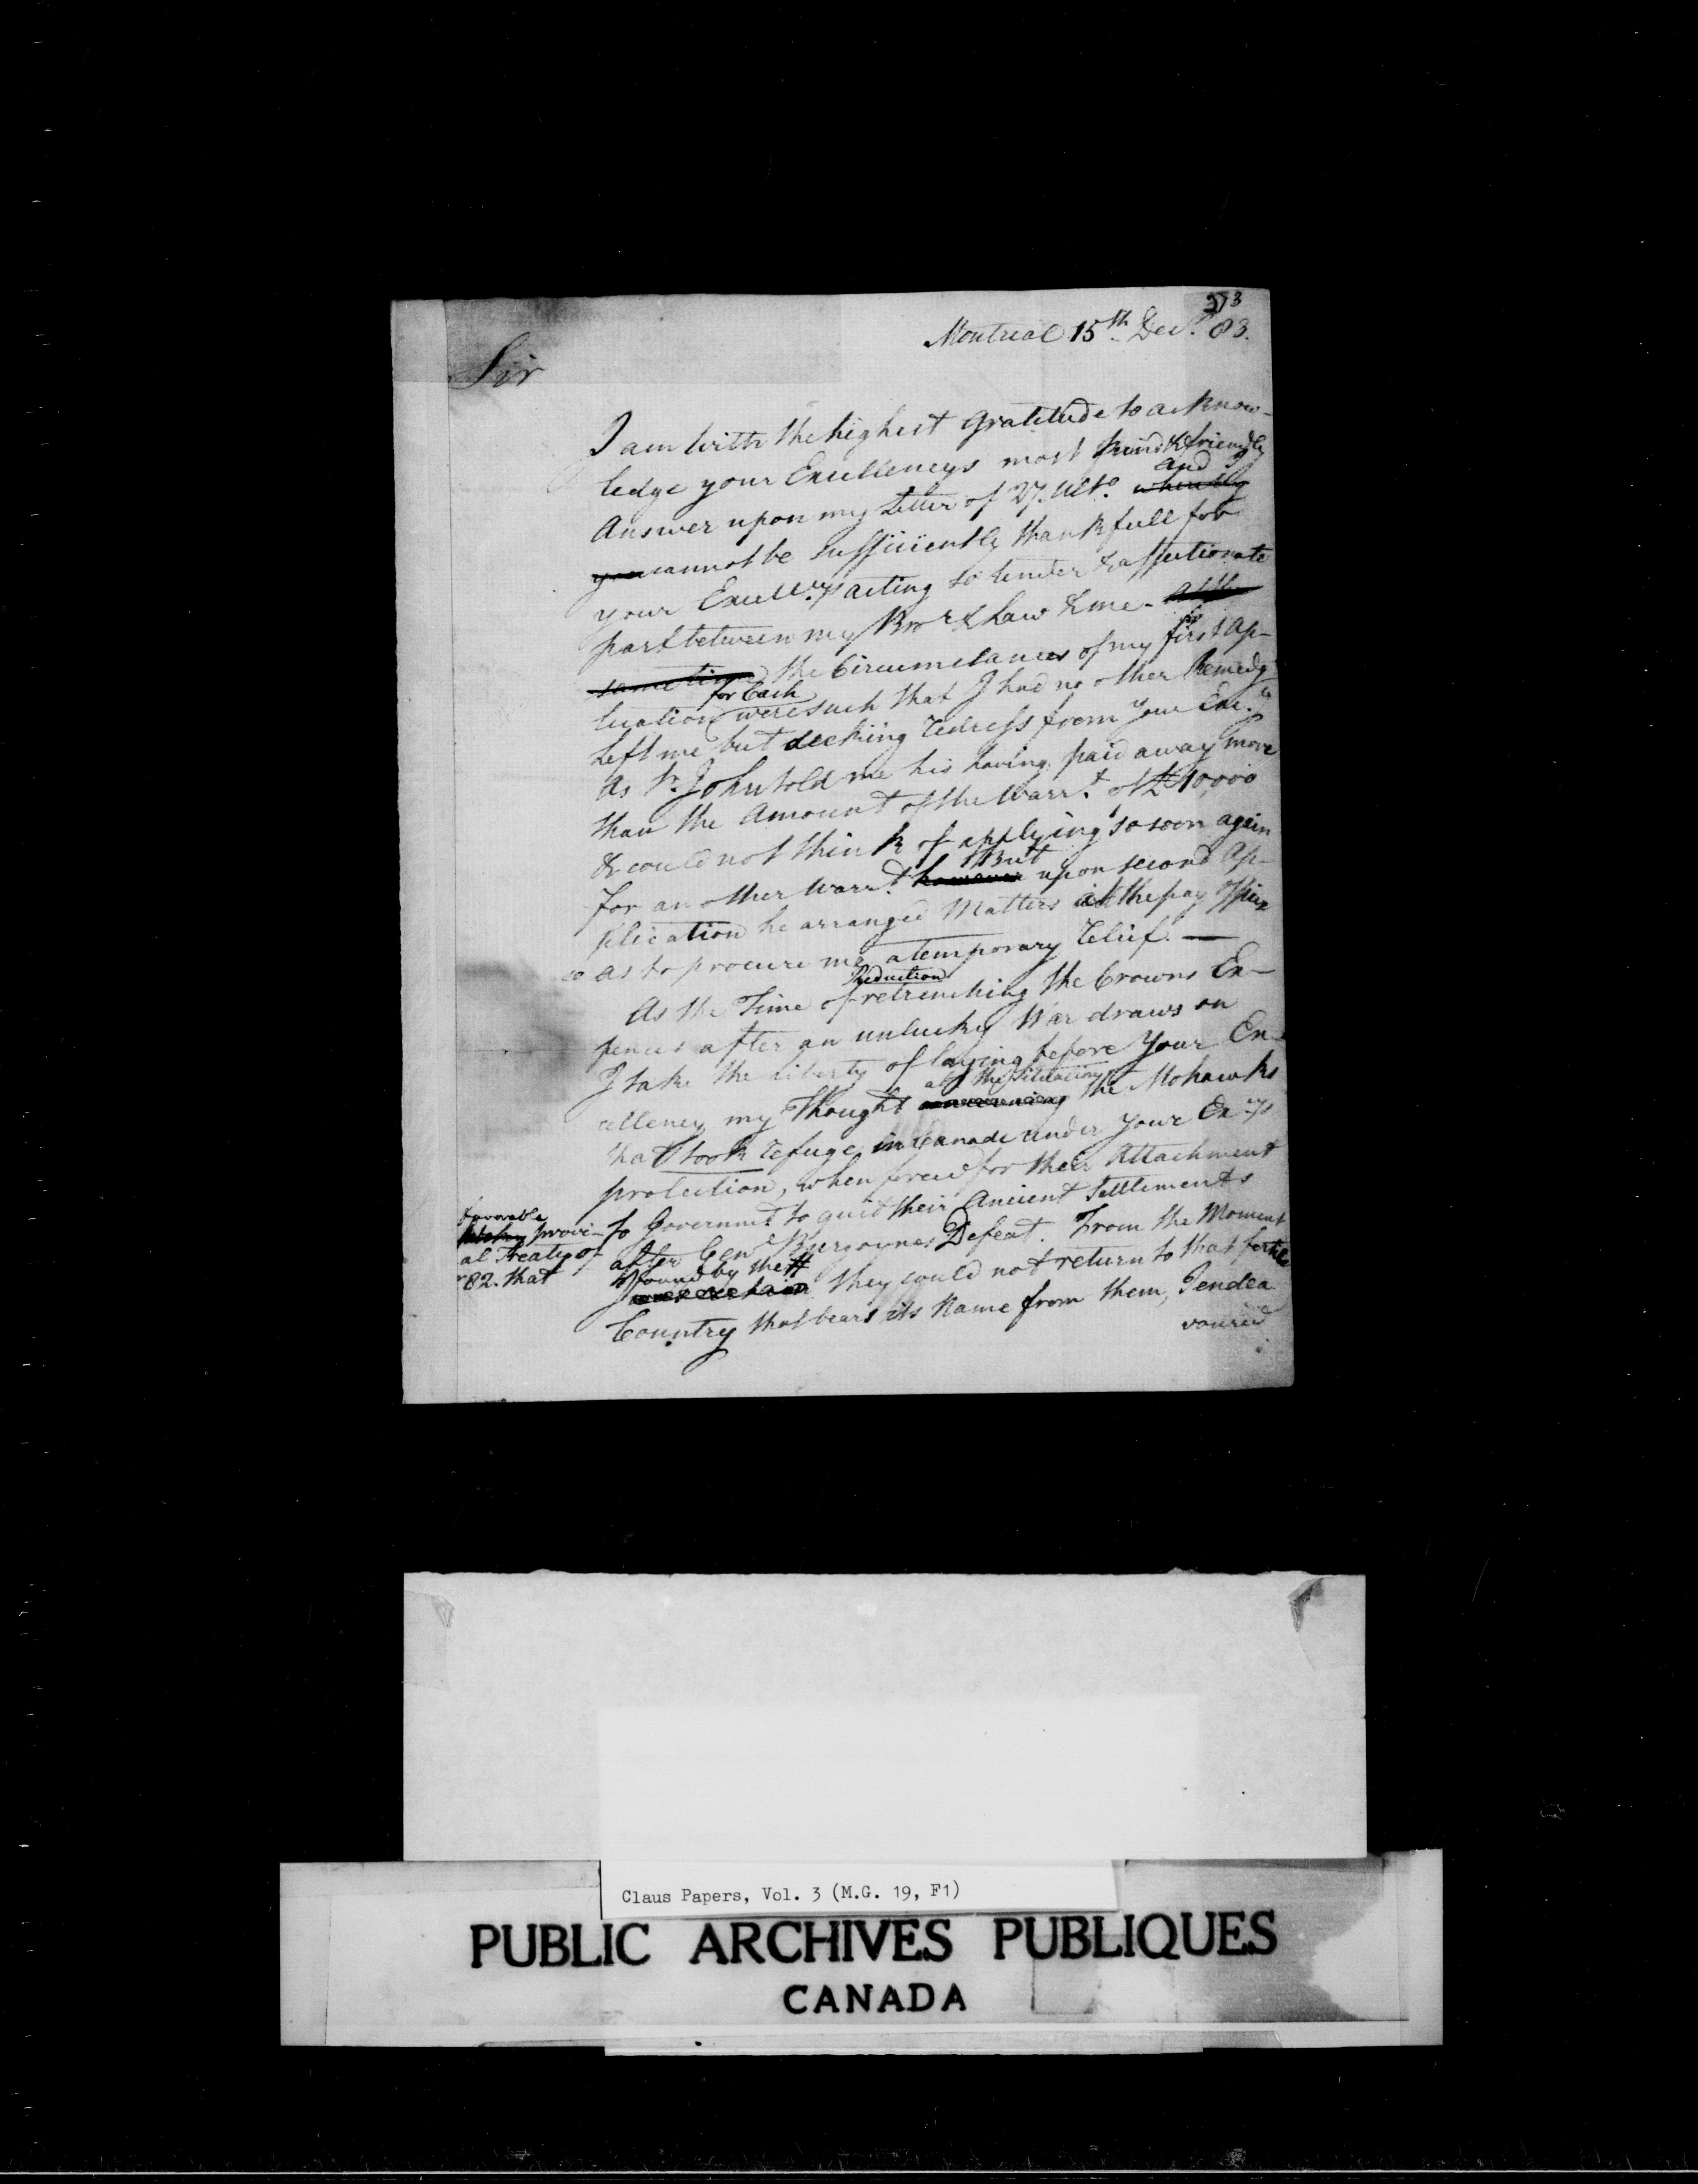 273
Montreal 15th Decr. 83.
Sir
I am with the highest Gratitude to acknow-
ledge your Excellencys most kind & friendly
Answer upon my Letter of 27. Ulto. and I
cannot be sufficiently thankfull for
your Excellcys acting so tender & affectionate
part between my Bror. & Law & me -
the Circumstances of my first ap-
lication for Cash were such that I had no other Remedy
left me but seeking redress from your Exc.y
As Sr. John told me his having paid away more
than the Amount of the Warrt. of £10,000
& could not think of applying so soon again
for another Warrt. however But upon second Ap-
plication he arranged Matters at the pay Office
so as to procure me a temporary relief. —
As the Time of retrenching Reduction the Crowns Ex-
pences after an unlucky War draws on
I take the Liberty of laying before Your Ex-
cellency my Thought concerning abt the Situation of the Mohawks
that took refuge in Canada under Your Excys
protection, when forced for their Attachment
to Governmt. to quit their Ancient Settlements
after Genl. Burgoynes Defeat. From the Moment
I found by the #
they could not return to that fertile
Country that bears its Name from them, I endea
voured
favorable
provi-
al Treaty of
82. that
Claus Papers, Vol. 3 (M.G. 19, F1)
PUBLIC ARCHIVES PUBLIQUES
CANADA